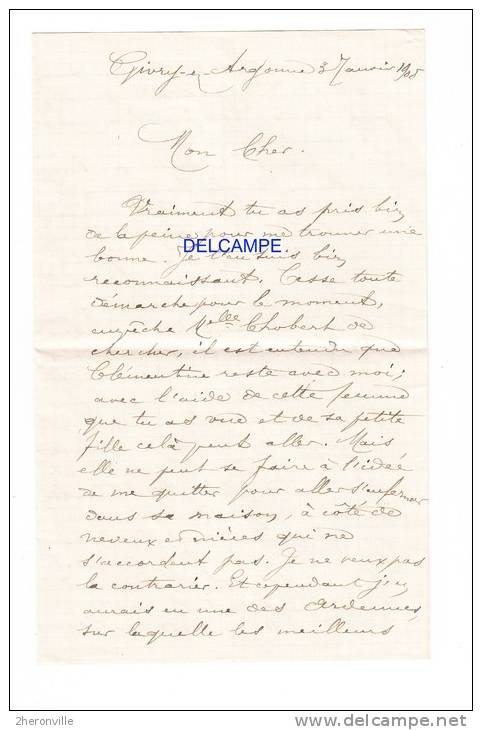 Givry-en-Argonne 3 Janvier 1908
Mon Cher.
Vraiment tu as pris bien
de la peine pour me trouver une
bonne. Je t'en suis bien
DELCAMPE
reconnaissant. Cesse toute
démarche pour le moment,
empêche Melle Chobert de
chercher, il est entendu que
Clémentine reste avec moi;
avec l'aide de cette femme
que tu as vue et de sa petite
fille celà peut aller. Mais
elle ne peut se faire à l'idée
de me quitter pour aller s'enfermer
dans sa maison, à côté de
neveux et nièces qui ne
s'accordent pas. Je ne veux pas
la contrarier. Et cependant j'en
aurais eu une des Ardennes,
sur laquelle les meilleurs
2heronville
delcampe.net